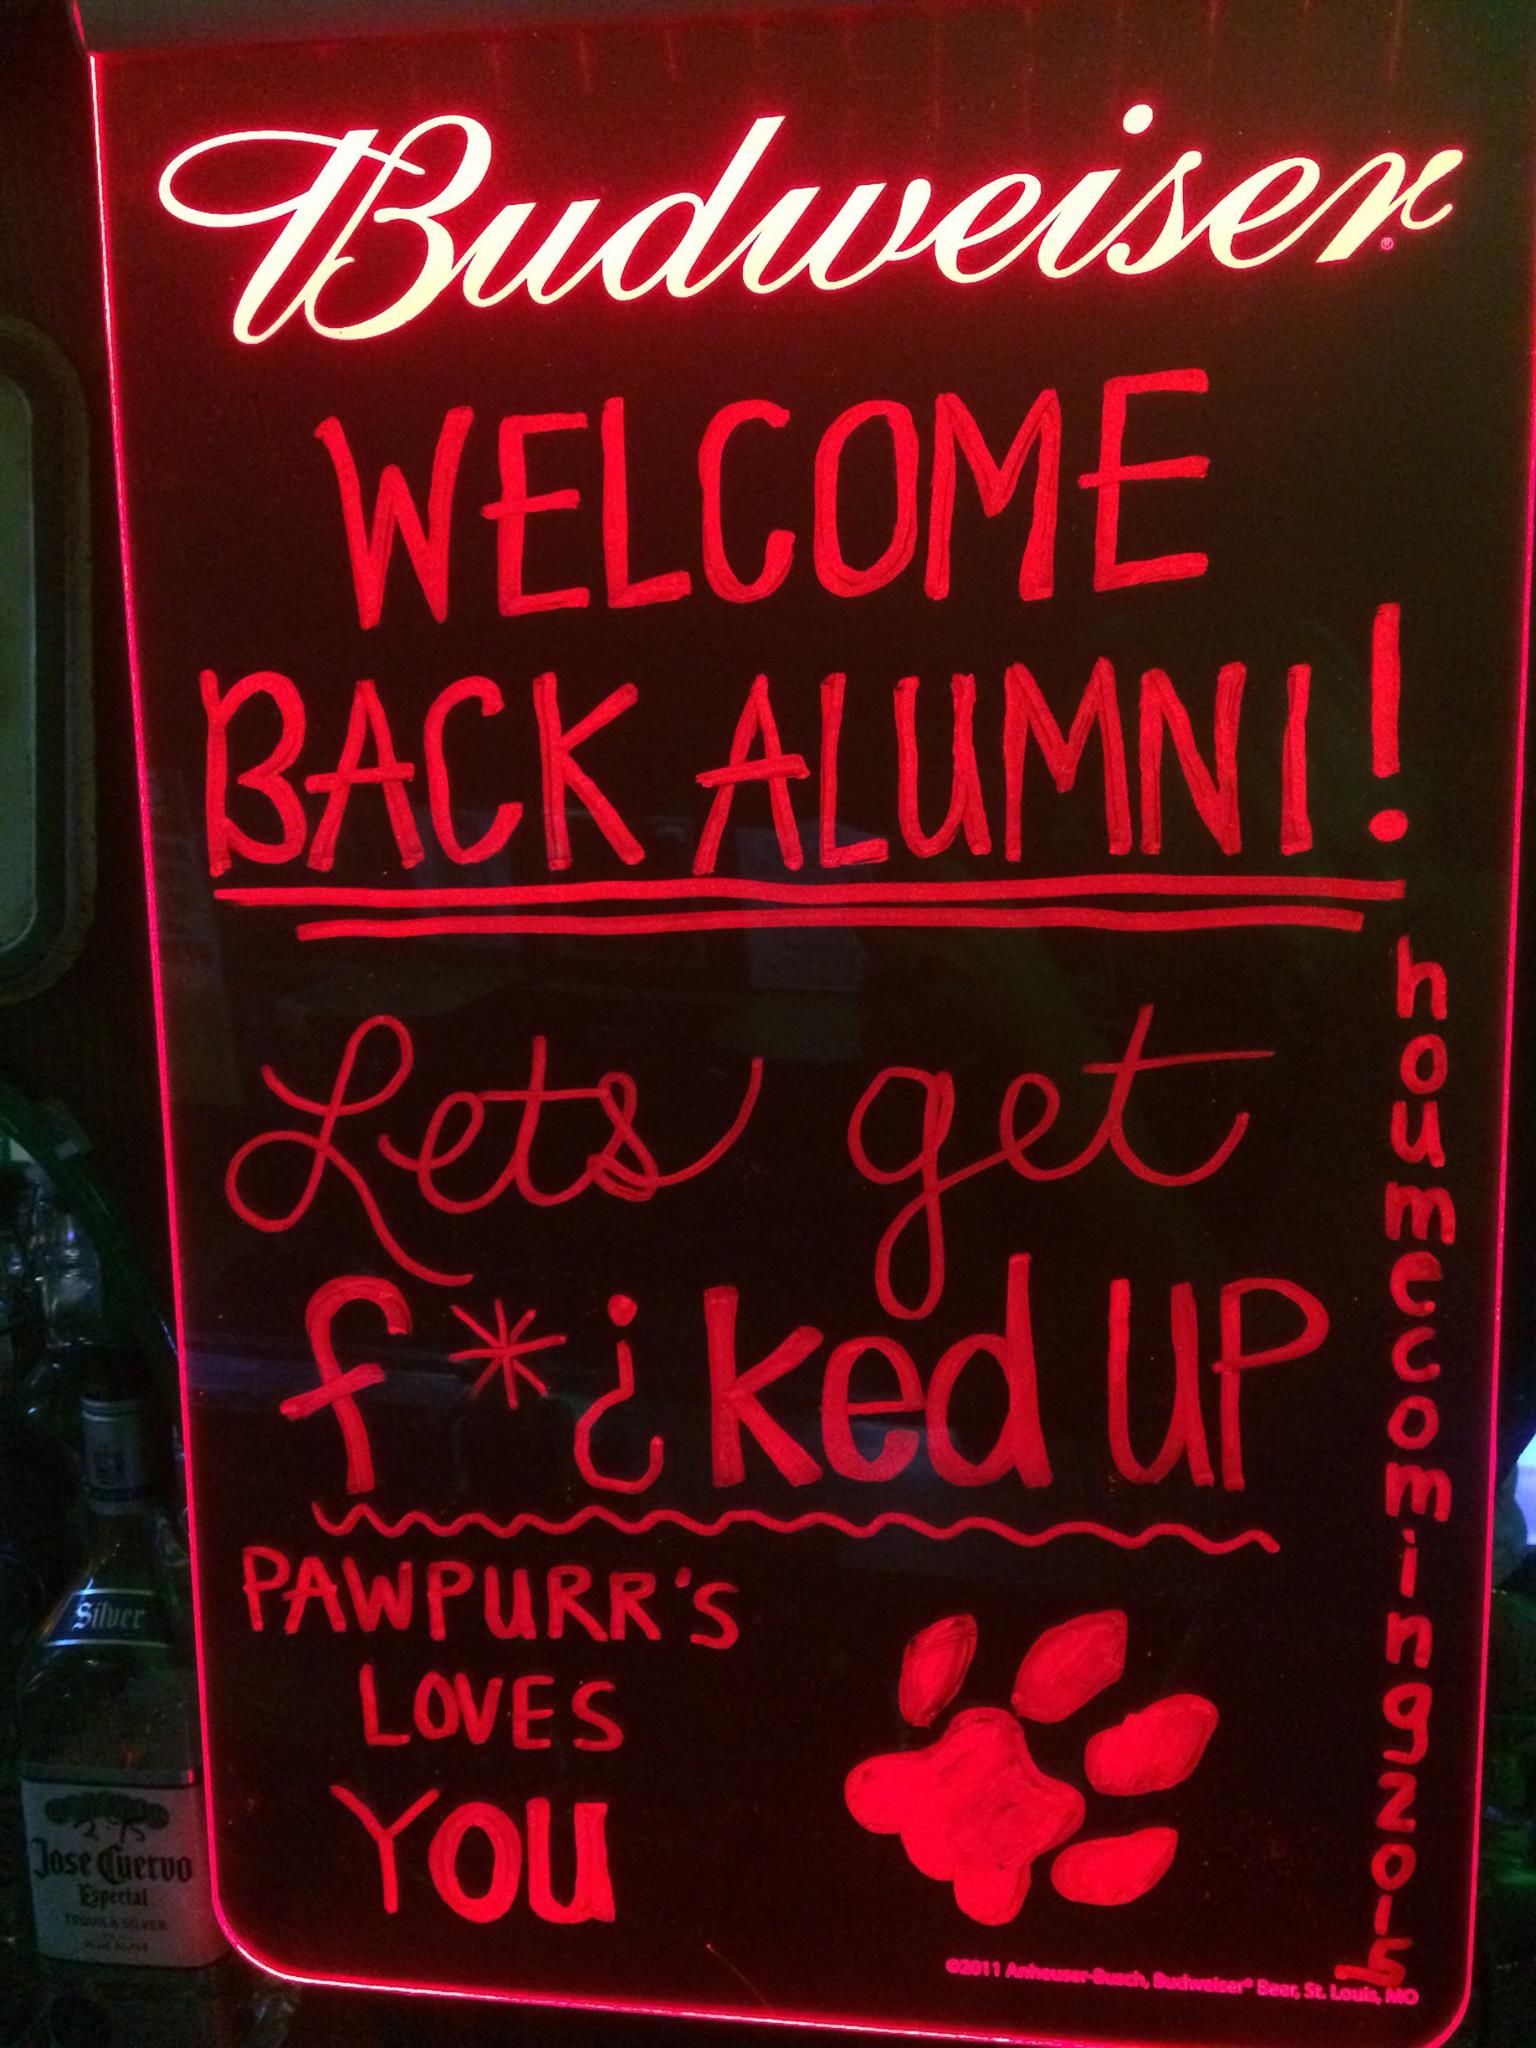 Budweiser
®
WELCOME
BACK ALUMNI!
Lets get
f*¿ked UP
PAWPURR'S
LOVES
YOU
houmecoming2015
©2011 Anheuser-Busch, Budweiser® Beer, St. Louis, MO
Silver
Jose Cuervo
Especial
TEQUILA SILVER
BLUE AGAVE